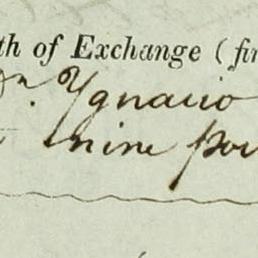 th of Exchange (fir
Dn. Ygnacio
nine Pou